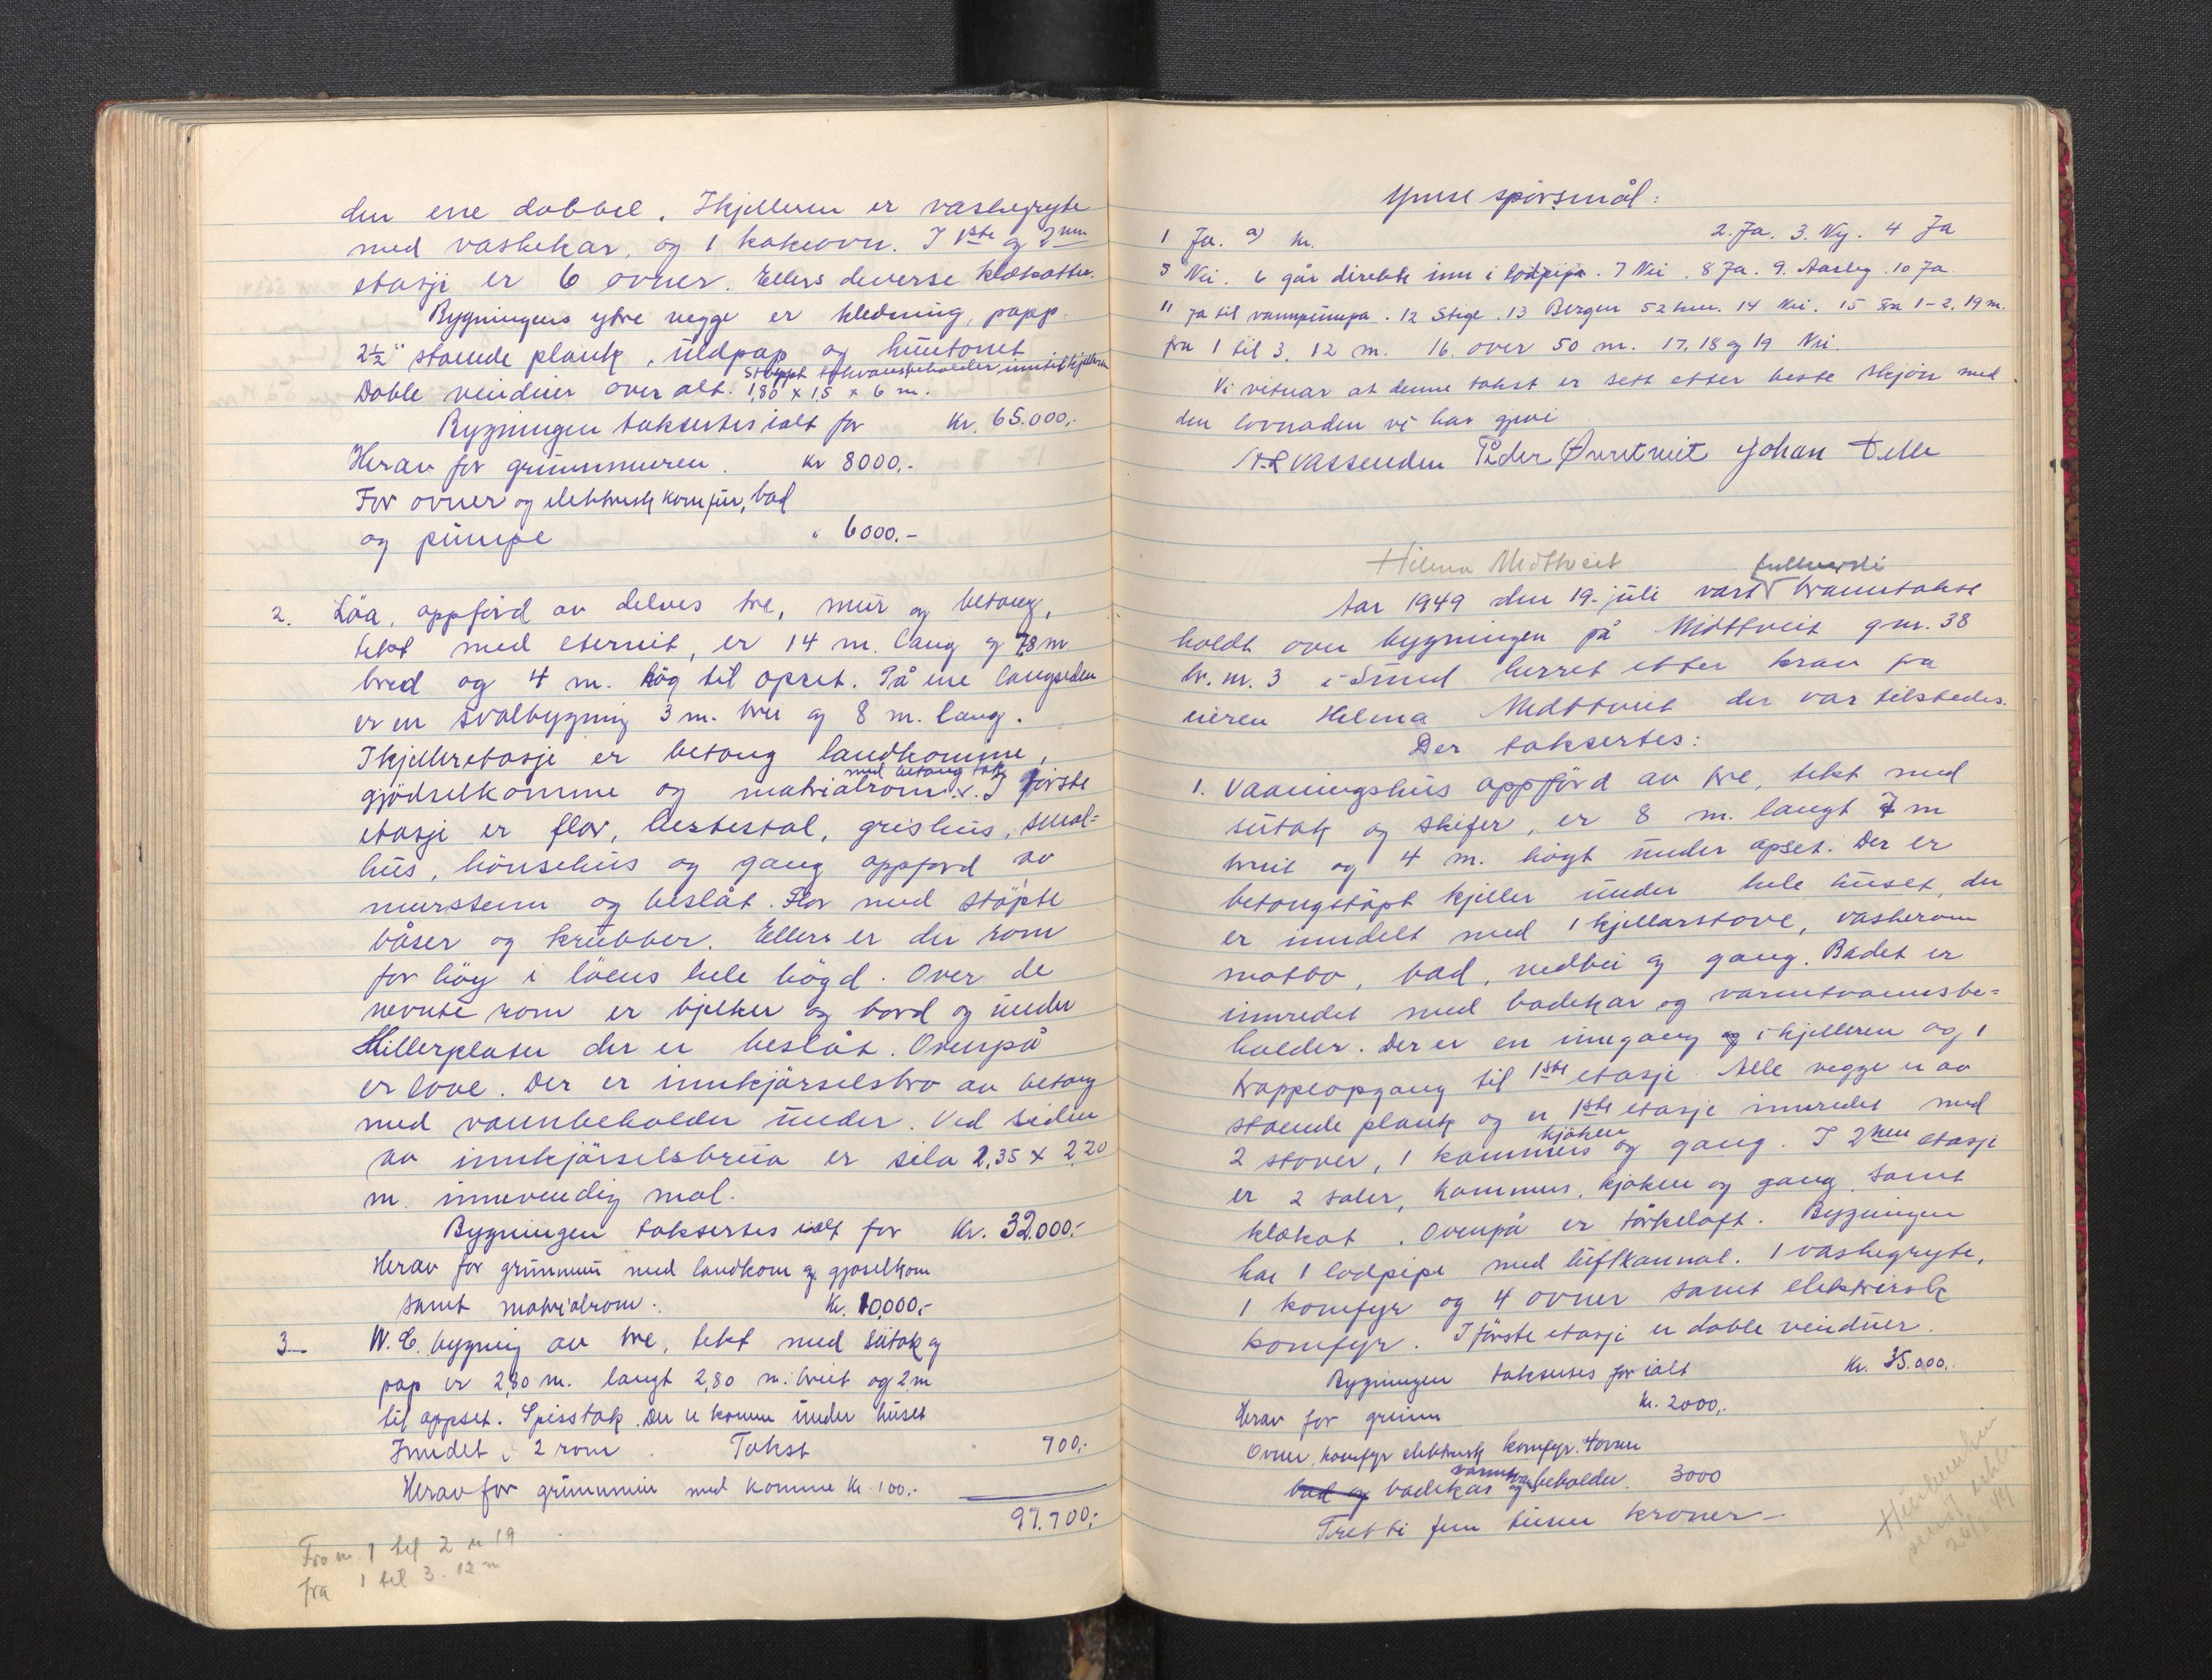 den ene dobbel. I kjelleren er vaskegryte
med vaskekar, og 1 kokeovn. I 1ste og 2nen
etasje er 6 ovner. Ellers deverse klekotter.
Bygningens ytre vegge er kledning, papp
2½" stående plank, ulldpap og huntonet
Doble vinduer over alt. Støypt takvansbeholder inntil kjelleren
1,80 x 15 x 6 m.
Bygningen taksertes ialt for Kr. 65.000,-
Herav for grunnmuren. Kr 8000,-
For ovner og elektrisk komfur, bad
og pumpe " 6000.-
2. Löa, oppförd av delves tre, mur og betong,
tekt med eternit, er 14 m. lang og 7,8 m
bred og 4 m. høg til opset. På ene langsiden
er en svalbygning 3 m. brei og 8 m. lang.
I kjelleretasje er betong landkomme,
gjödselkomme og matrialrom med betong tak. I första
etasje er flor, hestestal, grishus, smal=
hus, hönsehus og gang oppförd av
murstenn og beslåt. Flor med stöpte
båser og krubber. Ellers er der rom
for höy i löens hele högd. Over de
nevnte rom er bjelker og bord og under
Hillerplater der er beslåt. Ovenpå
er love. Der er innkjörselsbro av betong
med vannbeholder under. Ved siden
av innkjörselsbrua er sila 2,35 x 2,20
m. innvendig mål.
Bygningen taksertes ialt for Kr. 32.000.-
Herav for grunnmur med landkom og gjöselkom
samt matrialrom. Kr. 10.000,-
3 W.C. bygning av tre, tekt med sutak og
pap er 2,80 m. langt 2,80 m. breit og 2 m
til oppset. Spisstak. Der er komme under huset
Inndet i 2 rom. Takst " 700,-
Herav for grunnmur med komme Kr. 100.-
97.700,-
Fra nr. 1 til 2 er 19
fra 1 til 3. 12 m
Ymse spörsmål:
1 Ja. a) Kr. 2. Ja. 3. Ny. 4 Ja
5 Nei. 6 går direkte inn i lodpipa. 7 Nei. 8 Ja. 9. Aarleg. 10 Ja.
11 Ja til vannpumpa. 12 Stige. 13 Bergen 52 km. 14 Nei. 15 Fra 1-2. 19 m.
fra 1 til 3. 12 m. 16. over 50 m. 17, 18 og 19 Nei.
Vi vitnar at denne takst er sett etter beste skjön med
den lovnaden vi har gjevi
Vassenden Peder Øvretveit Johan Telle
Hilma Midttveit
Aar 1949 den 19. juli vart fullverdi branntakst
holdt over bygningen på Midttveit gnr. 38
br. nr. 3 i Sund herret etter krav fra
eieren Helma Midttveit der var tilstedes.
Der taksertes:
1. Vaaningshus oppförd av tre, tekt med
sutak og skifer, er 8 m. langt 7 m
breit og 4 m. högt under opset. Der er
betongstöpt kjeller under hele huset, den
er inndelt med 1 kjellarstove, vaskerom
matbo, bad, vedbu og gang. Badet er
innredet med badekar og varmtvannsbe=
holder. Der er en inngang i kjelleren og 1
trappeopgang til 1ste etasje. Alle vegge er av
stående plank og er 1ste etasje innredet med
2 stover, 1 kammers kjöken og gang. I 2nen etasje
er 2 saler, kammers, kjöken og gang, samt
klekot. Ovenpå er törkeloft. Bygningen
har 1 lodpipe med luftkannal. 1 vaskegryte,
1 komfyr og 4 ovner samt elektrisk
komfyr. I förste etasje er doble vinduer.
Bygningen taksertes for ialt Kr. 35.000,-
Herav for grunn Kr. 2000,-
Ovner, komfyr elektrisk komfyr. 4 ovner
bad og badekar og varmtvannsbeholder. 3000
Tretti fem tusen kroner—